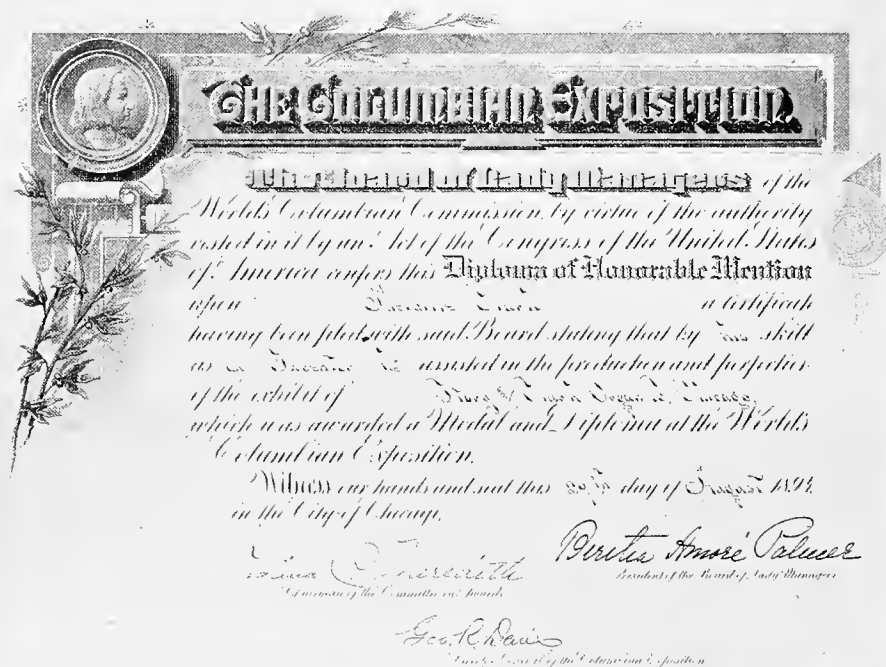 THE COLUMBIAN EXPOSITION.
The Board of Lady Managers of the
World's Columbian Commission, by virtue of the authority
vested in it by an Act of the Congress of the United States
of America confers this Diploma of Honorable Mention
upon a Certificate
having been filed with said Board stating that by his skill
as assisted in the production and perfection
of the exhibit of
which was awarded a Medal and Diploma at the World's
Columbian Exposition.
Witness our hands and seal this 29th day of August 1894
in the City of Chicago.
Bertha Honoré Palmer
President of the Board of Lady Managers
Chairman of the Committee on Awards
Geo. R. Davis
of the Columbian Exposition